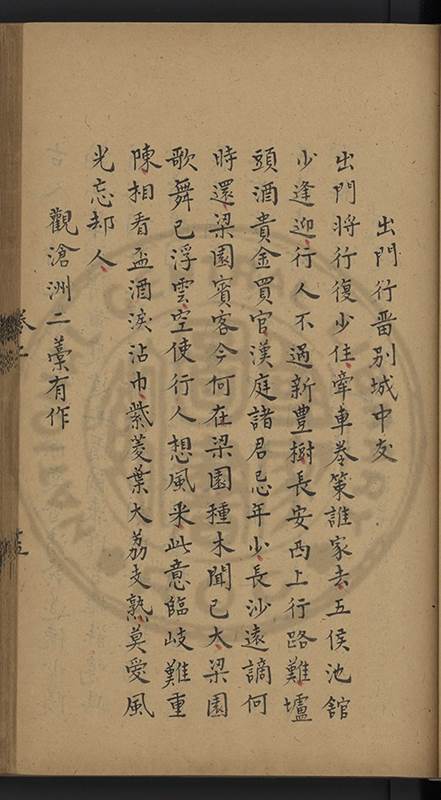 出門行畱别城中友
出門將行復少住牽車卷策誰家去五侯池館
少逢迎行人不過新豐樹長安西上行路難壚
頭酒貴金買官漢庭諸君忌年少長沙遠謫何
時還梁園賓客今何在梁園種木聞已大梁園
歌舞已浮雲空使行人想風采此意臨岐難重
陳相看盃酒淚沾巾紫菱葉大荔支熟莫愛風
光忘却人
觀滄洲二藁有作